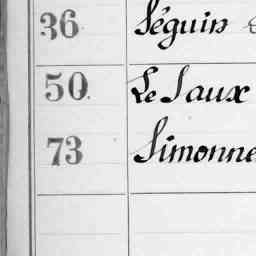 36 Séguin
50. Le Saux
73 Simonne